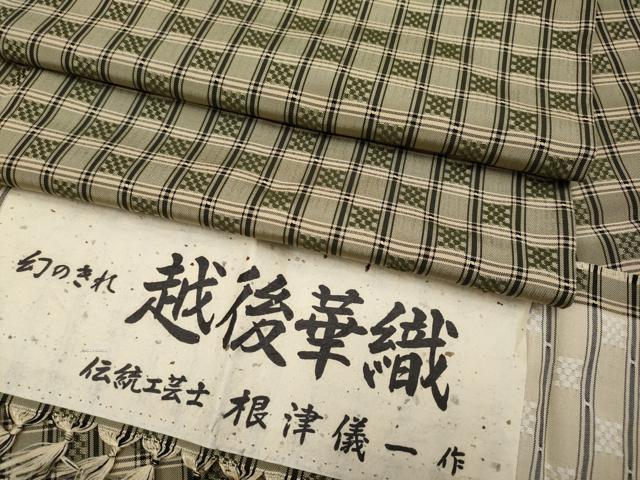 幻のきれ
越後華織
伝統工芸士 根津儀一 作